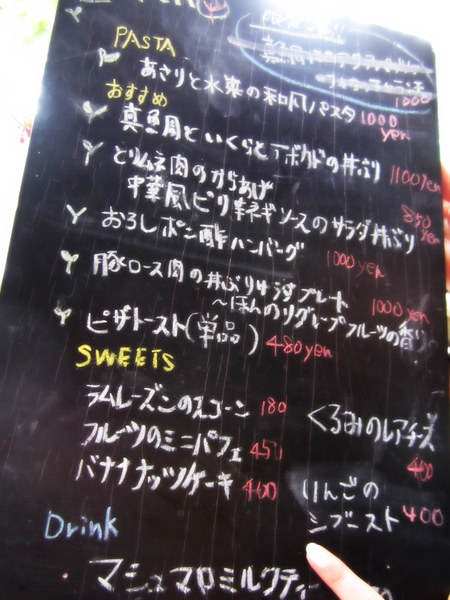 PASTA
あさりと水菜の和風パスタ 1000 yen
おすすめ
真鯛といくらとアボカドの丼ぶり 1100yen
とりムネ肉のからあげ
中華風ピリ辛ネギソースのサラダ丼ぶり 850 yen
おろしポン酢ハンバーグ 1000 yen
豚ロース肉の丼ぶりサラダプレート 1000 yen
〜ほんのりグレープフルーツの香り
ピザトースト(単品) 480 yen
SWEETS
ラムレーズンのスコーン 180
フルーツのミニパフェ 450
バナナナッツケーキ 400
くるみのレアチーズ
400
りんごの
シブースト 400
Drink
マシュマロミルクティー